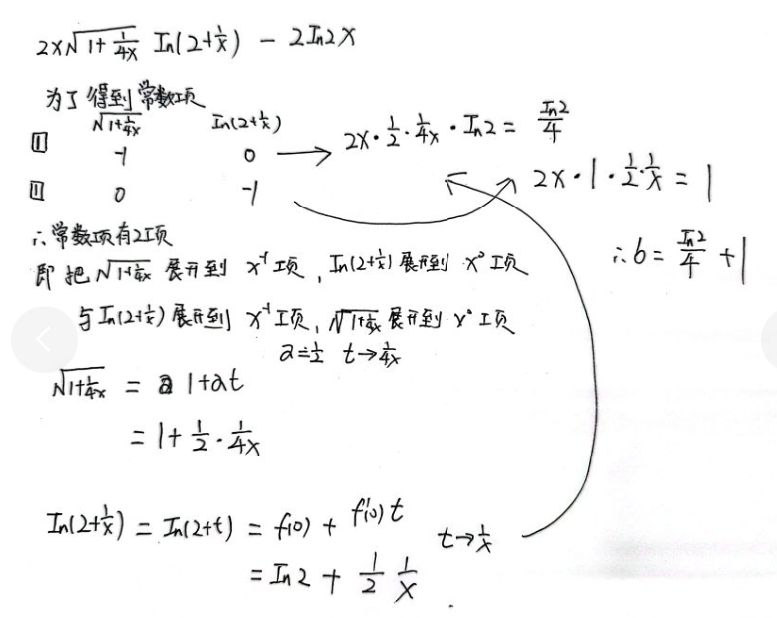 2x√(1+1/4x) In(2+1/x) - 2In2x
为了得到常数项
√(1+1/4x) In(2+1/x)
① -1 0 → 2x·1/2·1/4x·In2 = In2/4
① 0 -1 2x·1·1/2·1/x = 1
∴常数项有2项 ∴b = In2/4 + 1
即把√(1+1/4x) 展开到 x⁻¹项, In(2+1/x)展开到 x⁰项
与In(2+1/x)展开到 x⁻¹项, √(1+1/4x)展开到 x⁰项
a=1/2 t→1/4x
√(1+1/4x) = 1+at
= 1+1/2·1/4x
In(2+1/x) = In(2+t) = f(0) + f'(0)t t→1/x
= In2 + 1/2 1/x